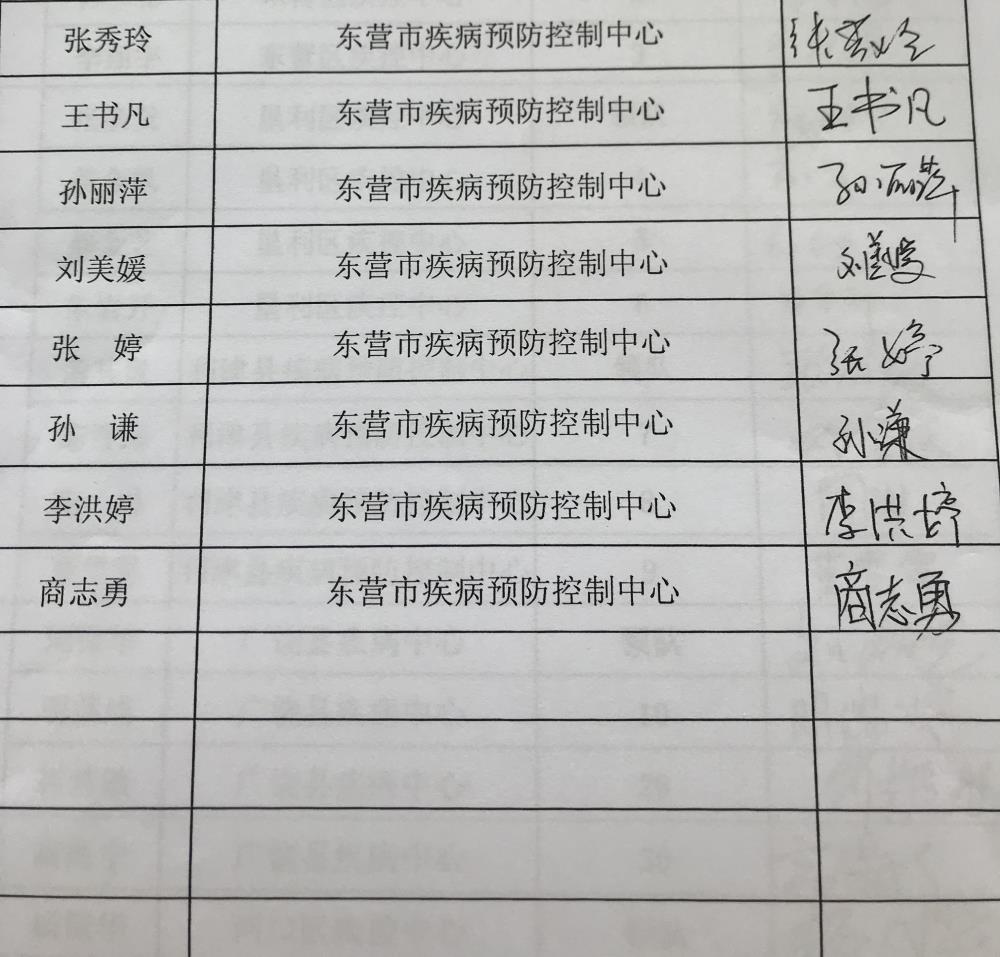 张秀玲 东营市疾病预防控制中心 张秀玲
王书凡 东营市疾病预防控制中心 王书凡
孙丽萍 东营市疾病预防控制中心 孙丽萍
刘美媛 东营市疾病预防控制中心 刘美媛
张 婷 东营市疾病预防控制中心 张婷
孙 谦 东营市疾病预防控制中心 孙谦
李洪婷 东营市疾病预防控制中心 李洪婷
商志勇 东营市疾病预防控制中心 商志勇